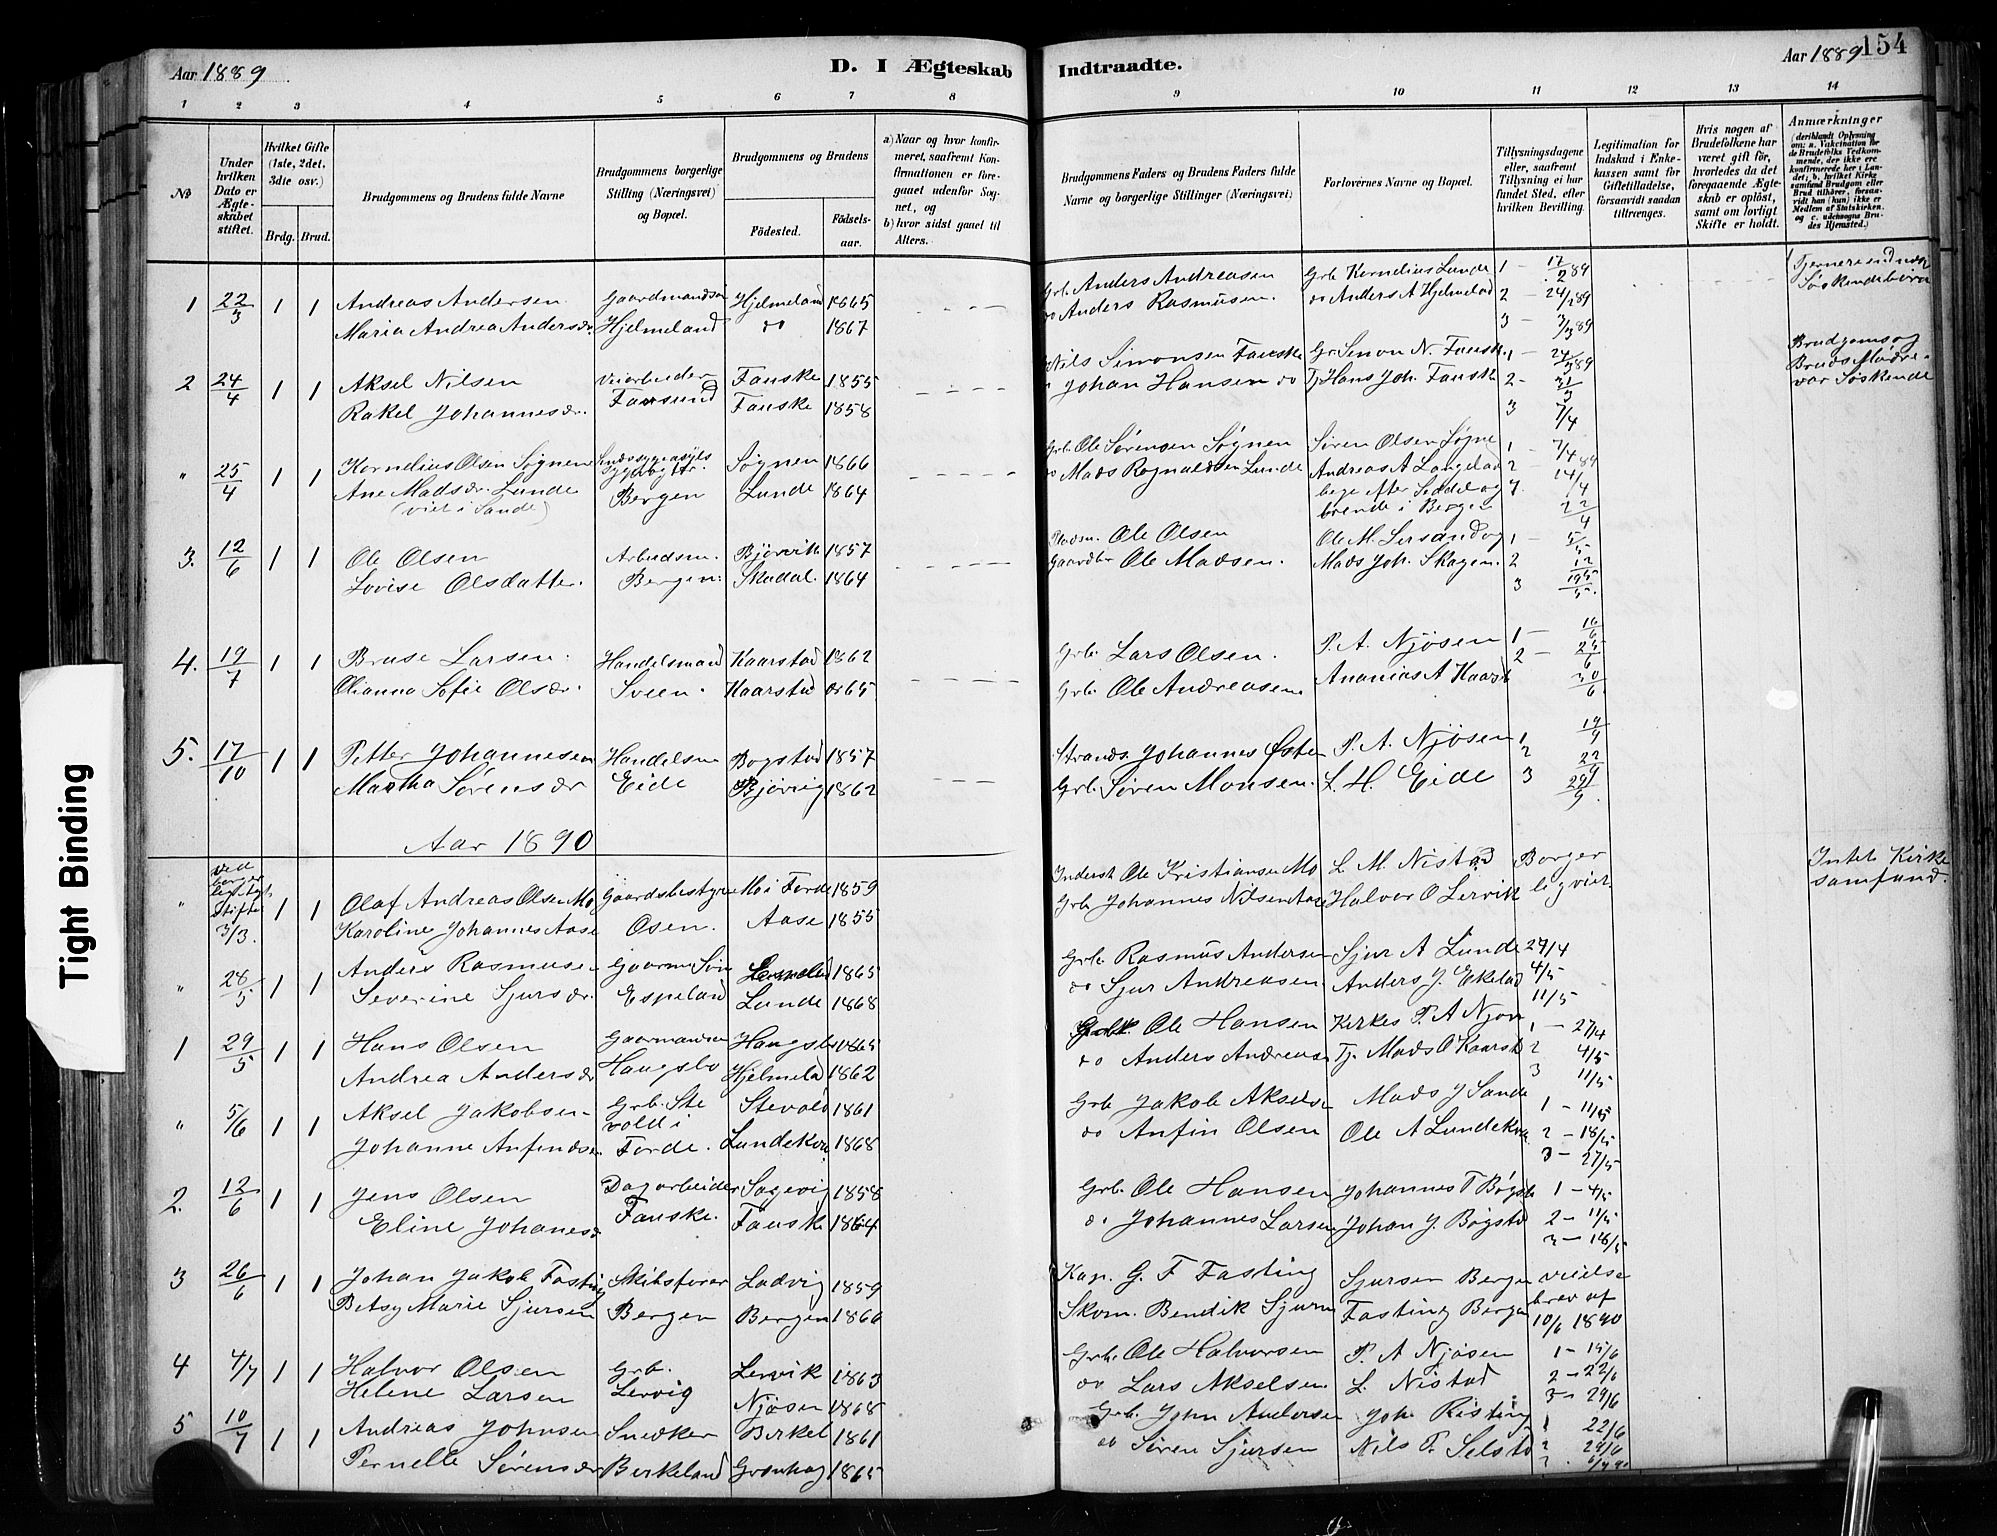 Aar 1889
D. I Ægteskab
1 2 3 4 5 6 7 8
№
Under hvilken Dato er Ægteskabet stiftet.
Hvilket Gifte (1ste, 2det, 3die osv.)
Brdg. Brud.
Brudgommens og Brudens fulde Navne
Brudgommens borgerlige Stilling (Næringsvei) og Bopæl.
Brudgommens og Brudens
Födested. Födselsaar.
a) Naar og hvor konfirmeret, saafremt Konfirmationen er foregaaet udenfor Sognet, og
b) hvor sidst gaaet til Alters.
1 22/3 1 1 Andreas Andersen Gaardmandssøn Hjelmeland 1865
Maria Andrea Andersdr. Hjelmeland do 1867
2 24/4 1 1 Aksel Nilsen Veiarbeider Fauske 1855
Rakel Johannesdr. Farsund Fauske 1858
" 25/4 1 1 Kornelius Olsen Søgnen Søgnen 1866
Ane Madsdr. Lunde Bergen Lunde 1864
(viet i Sande)
3. 12/6 1 1 Ole Olsen Arbeidsm. Bjørvik 1857
Lovise Olsdatter. Bergen. Skadal. 1864
4. 19/7 1 1 Bruse Larsen. Handelsmand Kaarstad 1862
Olianna Sofie Olsdr. Sveen. Kaarstad 65
5. 17/10 1 1 Petter Johannesen Handelsm Bogstad 1857
Martha Sørensdr Eide Bjørvig 1862
Aar 1890
" ved borgerligt Ægt. Stifte 3/3. 1 1 Olaf Andreas Olsen Mo Gaardsbestyrer Mo i Førde 1859
Karoline Johannes Aase Osen. Aase 1855
" 28/5 1 1 Anders Rasmusen Gaarm Søn 1865
Severine Sjursdr. Espeland Lunde 1868
1 29/5 1 1 Hans Olsen Gaarmandssøn Haugsbo 1865
Andrea Andersdr Haugsbo Hjelmelad 1862
" 5/6 1 1 Aksel Jakobsen Grb. Stevold i Stevold 1861
Johanne Anfindsen Førde. Lundekva 1868
2. 12/6 1 1 Jens Olsen Dagarbeider Sagevig 1858
Eline Johanesdr Fauske. Fauske 1864
3 26/6 1 1 Johan Jakob Fasting Skibsfører Ladvig 1859
Betsy Marie Sjursen Bergen Bergen 1866
4 4/7 1 1 Halvor Olsen Grb. Lervik 1863
Helene Larsen Lervig Njøsen 1868
5 10/7 1 1 Andreas Johnsen Snedker Birkel 1861
Pernelle Sørensdr Birkeland Grønhag 1865
Indtraadte.
Aar 1889 154
9 10 11 12 13 14
Brudgommens Faders og Brudens Faders fulde Navne og borgerlige Stillinger (Næringsvei)
Forlovernes Navne og Bopæl.
Tillysningsdagene eller, saafremt Tillysning ei har fundet Sted, efter hvilken Bevilling.
Legitimation for Indskud i Enkekassen samt for Giftetilladelse, forsaavidt saadan tiltrænges.
Hvis nogen af Brudefolkene har været gift för, hvorledes da det foregaaende Ægteskab er oplöst, samt om lovligt Skifte er holdt.
Anmærkninger
(deriblandt Oplysning om: a. Vakcination for de Brudefolks Vedkommende, der ikke ere konfirmerede her i Landet; b. hvilket Kirkesamfund Brudgom eller Brud tilhører, forsaavidt han (hun) ikke er Medlem af Statskirken. og c. udensogns Brudes Hjemsted.)
Grb. Anders Andreasen Grb Kornelius Lunde 1 — 17/2 89 Fjernere end
do Anders Rasmusen. do Anders A Hjelmelad 2 — 24/2 89 Søskendebörn
3 — 3/3 89
Nils Simonsen Fauske Gr Simon N. Fauske 1 — 24/3 89 Brudgoms og
Johan Hansen do Tj Hans Joh. Fauske 2 — 31/3 Bruds Mødre
3 7/4 var Søskende
Grb Ole Sørensen Søgnen Søren Olsen Søgne 1 — 7/4 89
do Mads Rognaldsen Lunde Andreas A Langelad 2 — 14/4
bege efter Seddel og
boende i Bergen 22/4
Pladsm. Ole Olsen Ole M. 1 — 5/5
Gaardbr Ole Madsen. Mads Joh. Skagen. 2 12/5
3 19/5
Grb. Lars Olsen. P. A. Njøsen 1 — 16/6
Grb. Ole Andreasen Ananias A Kaarst 2 — 23/6
30/6
Strands. Johannes Østen P. A. Njøsen 1
Grb. Søren Monsen. L. H. Eide 2 22/9
3 29/9
Inderst Ole Kristiansen Mo L. M. Nistad Borgerlig viet. Intet Kirke
Grb Johannes Nilsen Aase Halvor O Lervik samfund.
Grb. Rasmus Andersen Sjur A Lunde 27/4
do Sjur Andreasen Anders J. Ekelad 4/5
11/5
Ole Hansen Kirkes P. A Njøs 1 — 27/4
do Anders Andreasen Tj. Mads O Kaarst 2 4/5
3 11/5
Grb Jakob Akselsen Mads J Sande 1 — 11/5
do Anfin Olsen Ole A Lundekva 2 — 18/5
3 — 27/5
Grb. Ole Hansen Johannes T Bøgst 1 — 4/5
do Johannes Larsen Johan J. Bøgstd 2 — 11/5
3 — 18/5
Kap. G. F Fasting Sjursen Bergen Vielse
Skom. Bendik Sjursen Fasting Bergen brev af
10/6 1890
Grb. Ole Halvorsen P. A Njøsen 1 — 15/6
do Lars Akselsen. L. Nistad 2 — 22/6
3 — 29/6
Grb. John Andersen Joh. Risting 1 22/6
do Søren Sjursen Nils P. Selstd 2 29/6
6/7 90
Tight Binding